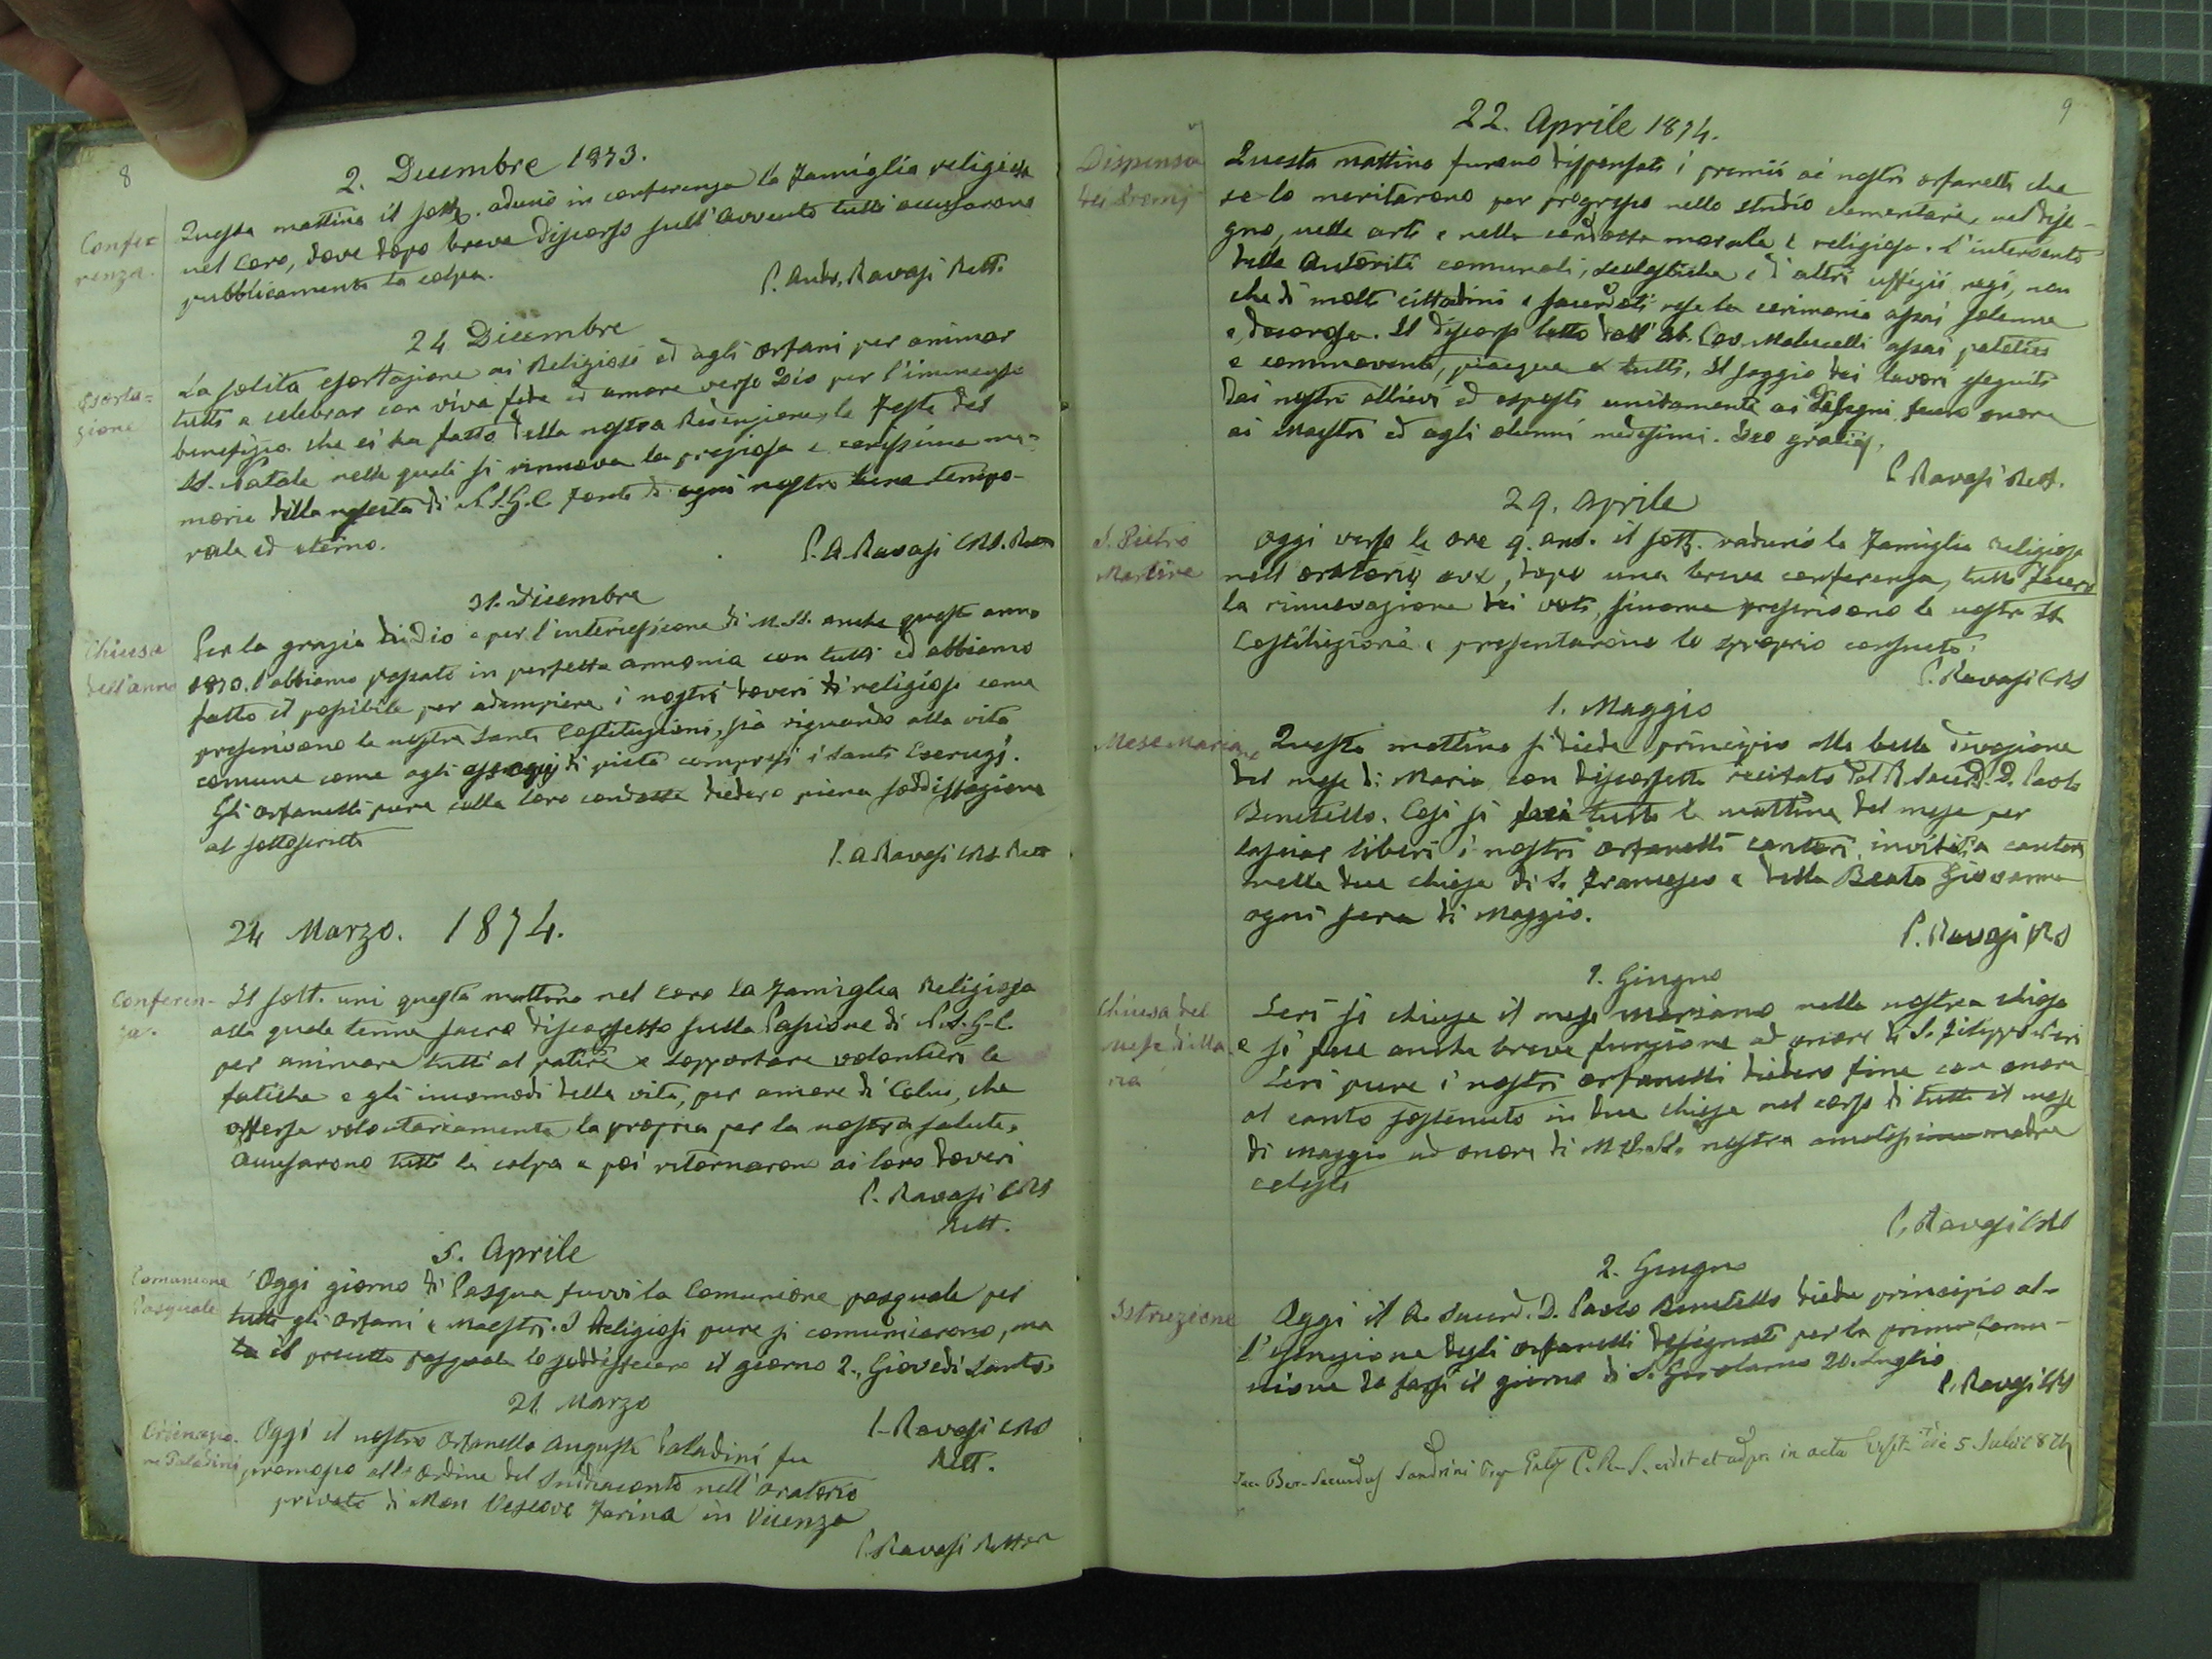 8
2. Dicembre 1873.
Confe=
renza.
Questa mattina il sott. adunò in conferenza la Famiglia religiosa
nel Coro, dove dopo breve discorso sull'Avvento tutti accusarono
pubblicamente la colpa.
P. Andr. Ravasi Rett.
24 Dicembre
Esorta=
zione
La solita esortazione ai Religiosi ed agli Orfani per animar
tutti a celebrar con viva fede ed amore verso Dio per l'immenso
benefizio che ci ha fatto della nostra Redenzione, le Feste del
SS. Natale nelle quali si rinnova la preziosa e carissima me-
moria della nascita di N.S.G.C. fonte di ogni nostro bene tempo-
rale ed eterno.
P. A. Ravasi CRS. Rett
31. Dicembre
Chiusa
dell'anno
Per la grazia di Dio e per l'intercessione di M. SS. anche quest'anno
1873. l'abbiamo passato in perfetta armonia con tutti ed abbiamo
fatto il possibile per adempiere i nostri doveri di religiosi come
prescrivono le nostre Sante Costituzioni, sia riguardo alla vita
comune come agli di pietà compresi i Santi Esercizj.
Gli orfanelli pure colla loro condotta diedero piena soddisfazione
al sottoscritto
P. A Ravasi CRS. Rett
24 Marzo. 1874.
Conferen-
za.
Il sott. unì questa mattina nel Coro la Famiglia Religiosa
alla quale tenne sacro discorsetto sulla Passione di N.S.G.C.
per animare tutti al patire e sopportare volontieri le
fatiche e gli incomodi della vita, per amore di Colui, che
offerse volontariamente la propria per la nostra salute.
Accusarono tutti la colpa e poi ritornarono ai loro doveri
P. Ravasi CRS
Rett.
5. Aprile
Comunione
Pasquale
Oggi giorno di Pasqua fuvvi la Comunione pasquale per
tutti gli Orfani e Maestri. I Religiosi pure si comunicarono, ma
il precetto pasquale lo soddisfecero il giorno 2., Giovedì Santo.
P. Ravasi CRS
Rett.
21. Marzo
Ordinazio-
ne Paladini
Oggi il nostro Orfanello Augusto Paladini fu
promosso all'Ordine del Suddiaconato nell'oratorio
privato di Mon Vescovo Farina in Vicenza
P. Ravasi Rettor
9
22. Aprile 1874.
Dispensa
dei Premj
Questa mattina furono dispensati i premii ai nostri orfanelli che
se lo meritarono per progresso nello studio elementare, nel dise-
gno, nelle arti e nella condotta morale e religiosa. L'intervento
delle Autorità comunali, scolastiche e di altri uffizii regi, non
che di molti cittadini e sacerdoti rese la cerimonia assai solenne
e decorosa. Il discorso letto dall'Ab. Cav. Malucelli assai patetico
e commovente, piacque a tutti. Il saggio dei lavori eseguiti
dai nostri allievi ed esposti unitamente ai disegni fecero onore
ai Maestri ed agli alunni medesimi. Deo gratias.
P. Ravasi Rett.
29. Aprile
S. Pietro
Martire
Oggi verso le ore 9. ant. il sott. radunò la Famiglia religiosa
nell'oratorio ove, dopo una breve conferenza, tutti fecero
la rinnovazione dei voti, siccome prescrivono le nostre SS.
Costituzioni e presentarono lo sproprio consueto.
P. Ravasi CRS
1. Maggio
Mese Maria
Questa mattina si diede principio alla bella divozione
del mese di Maria con discorsetto recitato dal R. Sacerd. D. Paolo
Benetello. Così si farà tutte le mattine del mese per
lasciar liberi i nostri orfanelli cantori, invitati a cantar
nelle due chiese di S. Francesco e della Beata Giovanna
ogni sera di Maggio.
P. Ravasi CRS
1. Giugno
Chiusa del
Mese di Ma
ria
Ieri si chiuse il mese mariano nella nostra chiesa
e si fece anche breve funzione ad onore di S. Filippo Neri
Ieri pure i nostri orfanelli diedero fine con onore
al canto sostenuto in due chiese nel corso di tutto il mese
di Maggio ad onore di M. SS. nostra amatissima madre
celeste
P. Ravasi CRS
2. Giugno
Istruzione
Oggi il R. Sacerd. D. Paolo Benetello diede principio al-
l'istruzione degli orfanelli designati per la prima Comu-
nione da farsi il giorno di S. Girolamo 20. Luglio
P. Ravasi CRS
Sandrini C. R. S. vidit et in actu die 5 Julii 1874